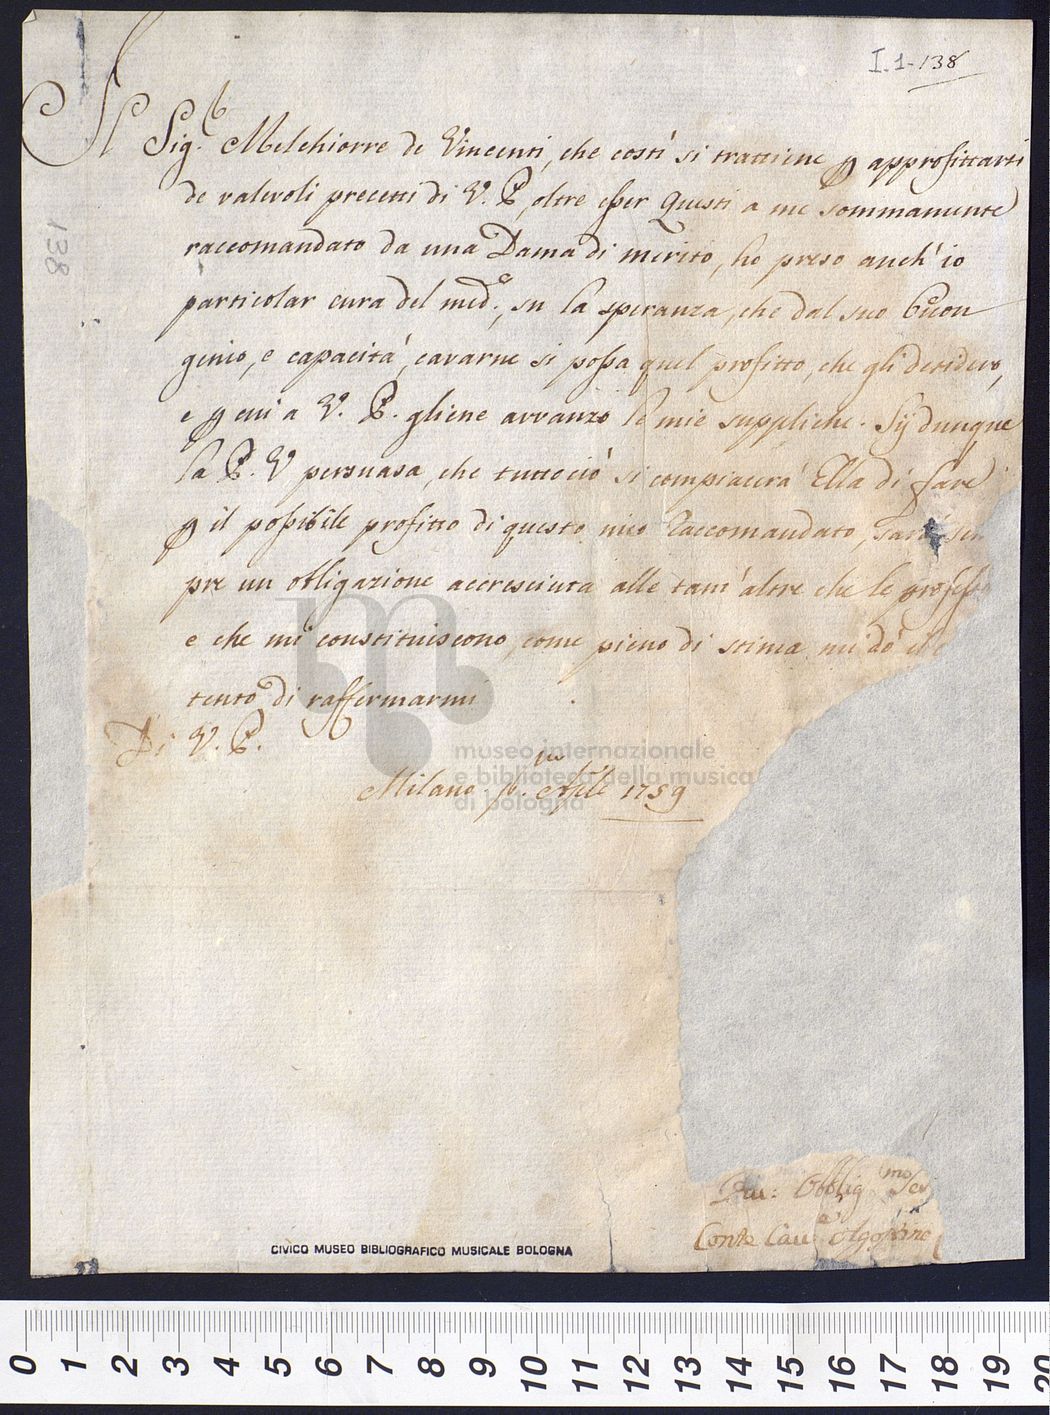 I.1-138
Il Sig.r Melchiorre de Vincenti, che costì si trattiene p approfittarsi
de valevoli precetti di V. P., oltre esser questi a me sommamente
raccomandato da una Dama di merito, ho preso anch'io
particolar cura del med.o, su la speranza, che dal suo buon
genio, e capacità, cavarne si possa quel profitto, che gli desidero,
e p cui a V. P. gliene avvanzo le mie suppliche. Sij dunque
la P. V persuasa, che tutto ciò si compiacerà Ella di fare
p il possibile profitto di questo mio Raccomandato, sarà sem
pre un obligazione accresciuta alle tant'altre che le profess
e che mi constituiscono, come pieno di stima mi dò il
tento di raffermarmi
Di V. P.
Milano p.mo Aprile 1759
museo internazionale
e biblioteca della musica
di bologna
Obblig.mo Ser
Conte Cav.e Agostino
CIVICO MUSEO BIBLIOGRAFICO MUSICALE BOLOGNA
138
0 1 2 3 4 5 6 7 8 9 10 11 12 13 14 15 16 17 18 19 20